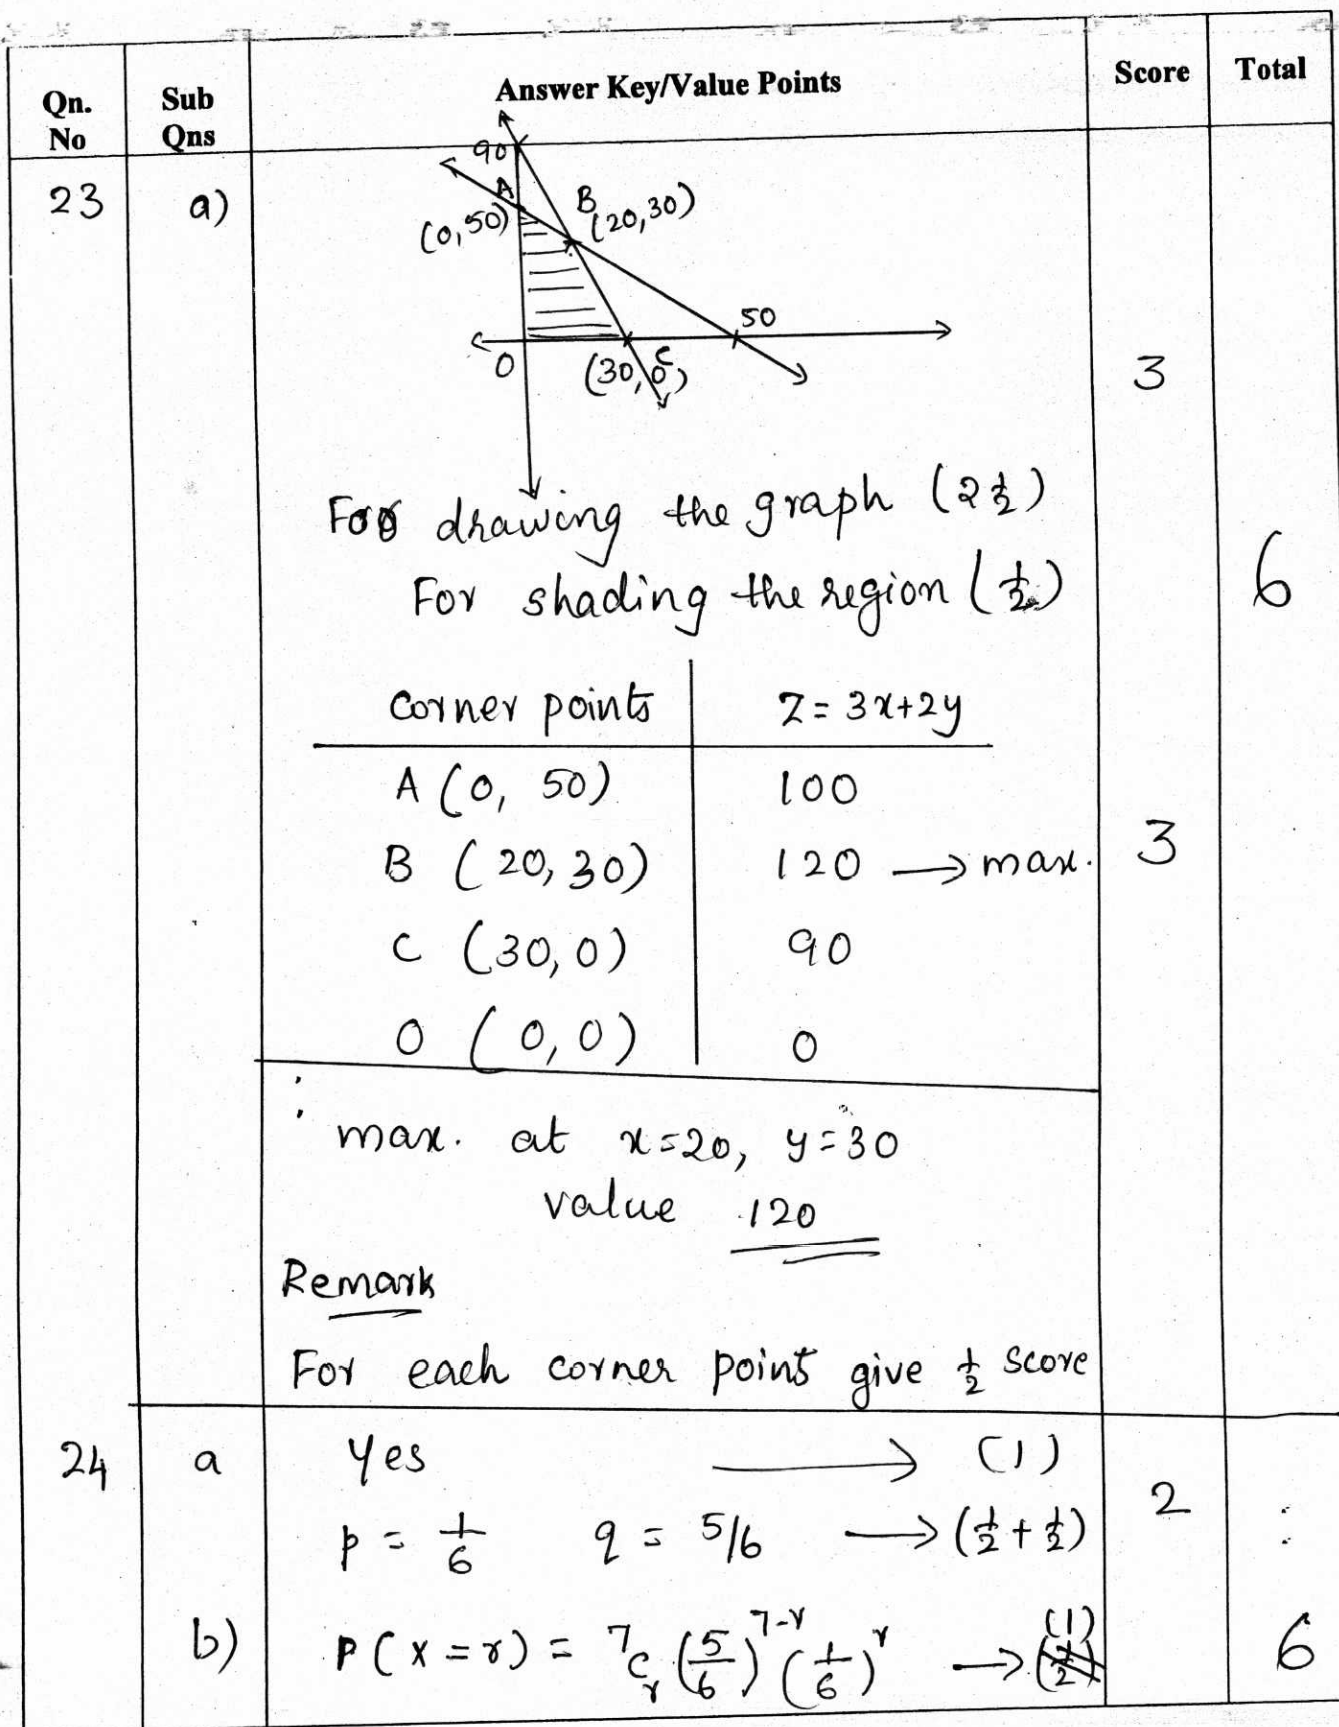 Qn. No Sub Qns Answer Key/Value Points Score Total
23 a)
90
A
(0,50)
B
(20,30)
50
O
(30,0)
C
3
For drawing the graph (2 1/2)
For shading the region (1/2)
6
Corner points Z = 3x+2y
A (0, 50) 100
B (20,30) 120 → max. 3
C (30,0) 90
O (0,0) 0
∴ max. at x=20, y=30
value 120
Remark
For each corner point give 1/2 score
24 a Yes → (1)
2
p = 1/6 q = 5/6 → (1/2 + 1/2)
b) P(x=r) = 7Cr (5/6)^7-r (1/6)^r → (1)
6